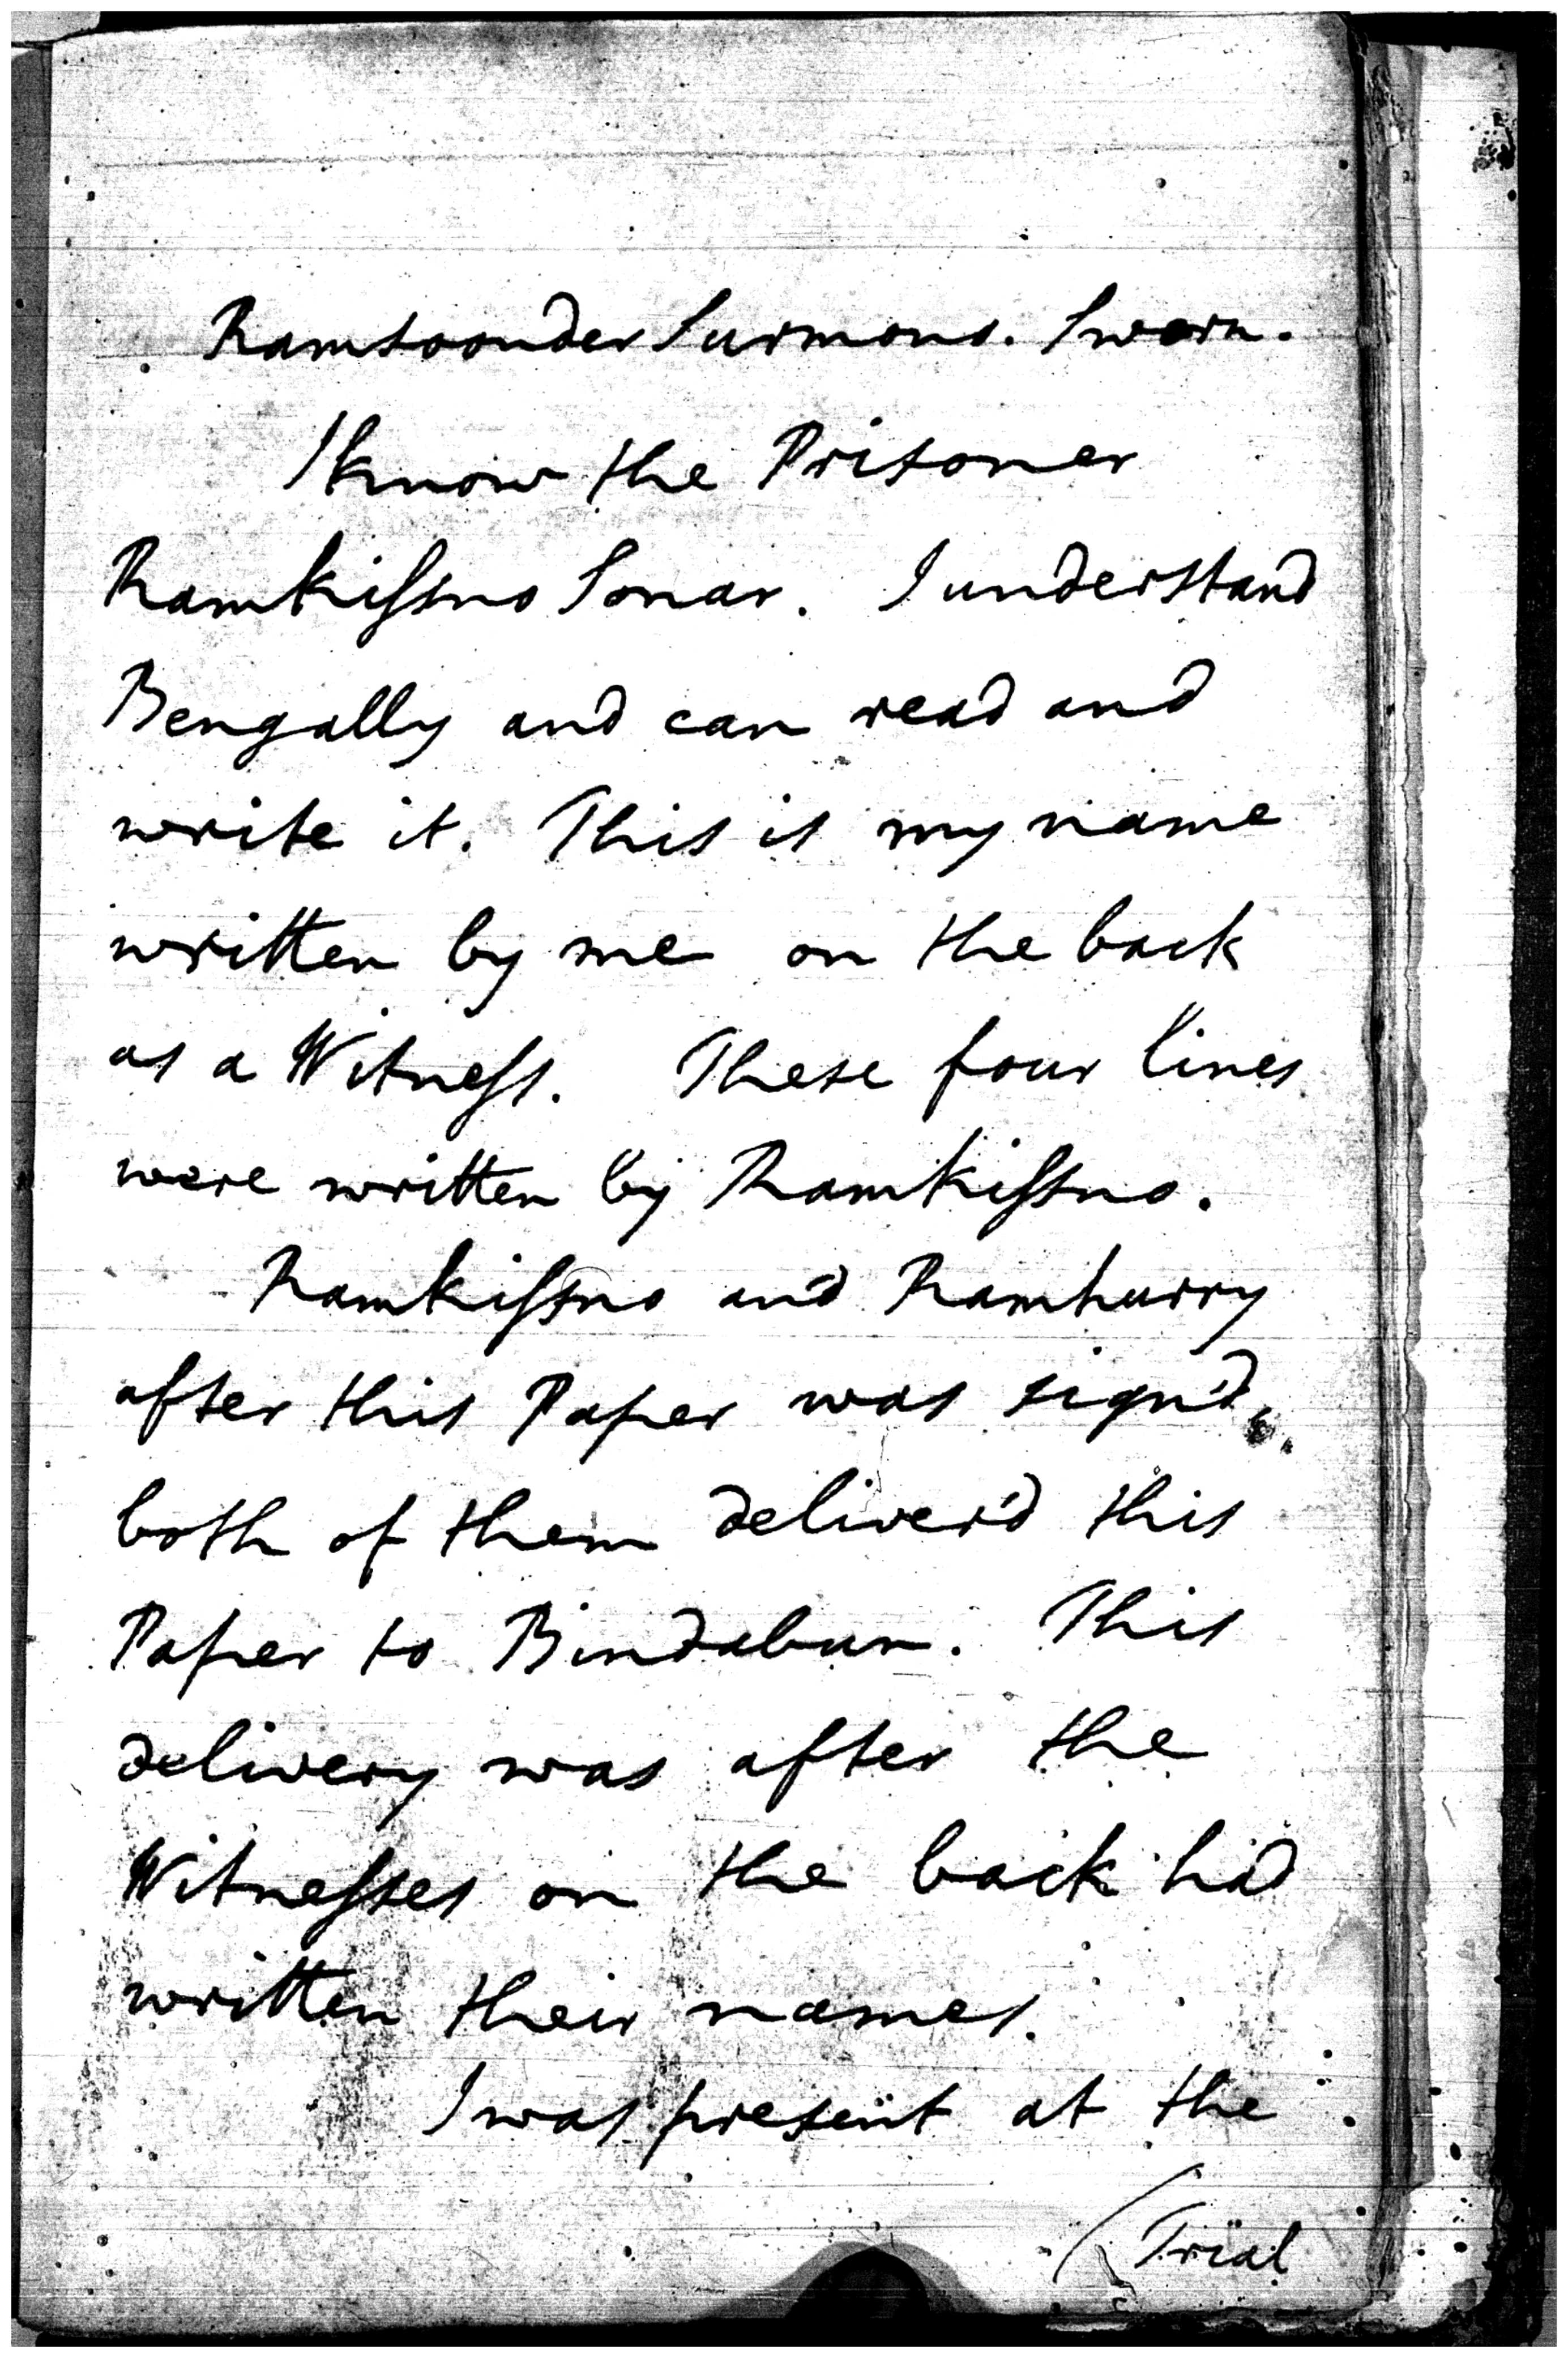 Ramsoonder Surmono. Sworn.
I know the Prisoner
Ramkissno Sonar. I understand
Bengally and can read and
write it. This is my name
written by me on the back
as a Witness. These four lines
were written by Ramkissno.
Ramkissno and Ramhurry
after this Paper was sign'd,
both of them deliver'd this
Paper to Bindabun. This
delivery was after the
Witnesses on the back had
written their names.
I was present at the
(Trial